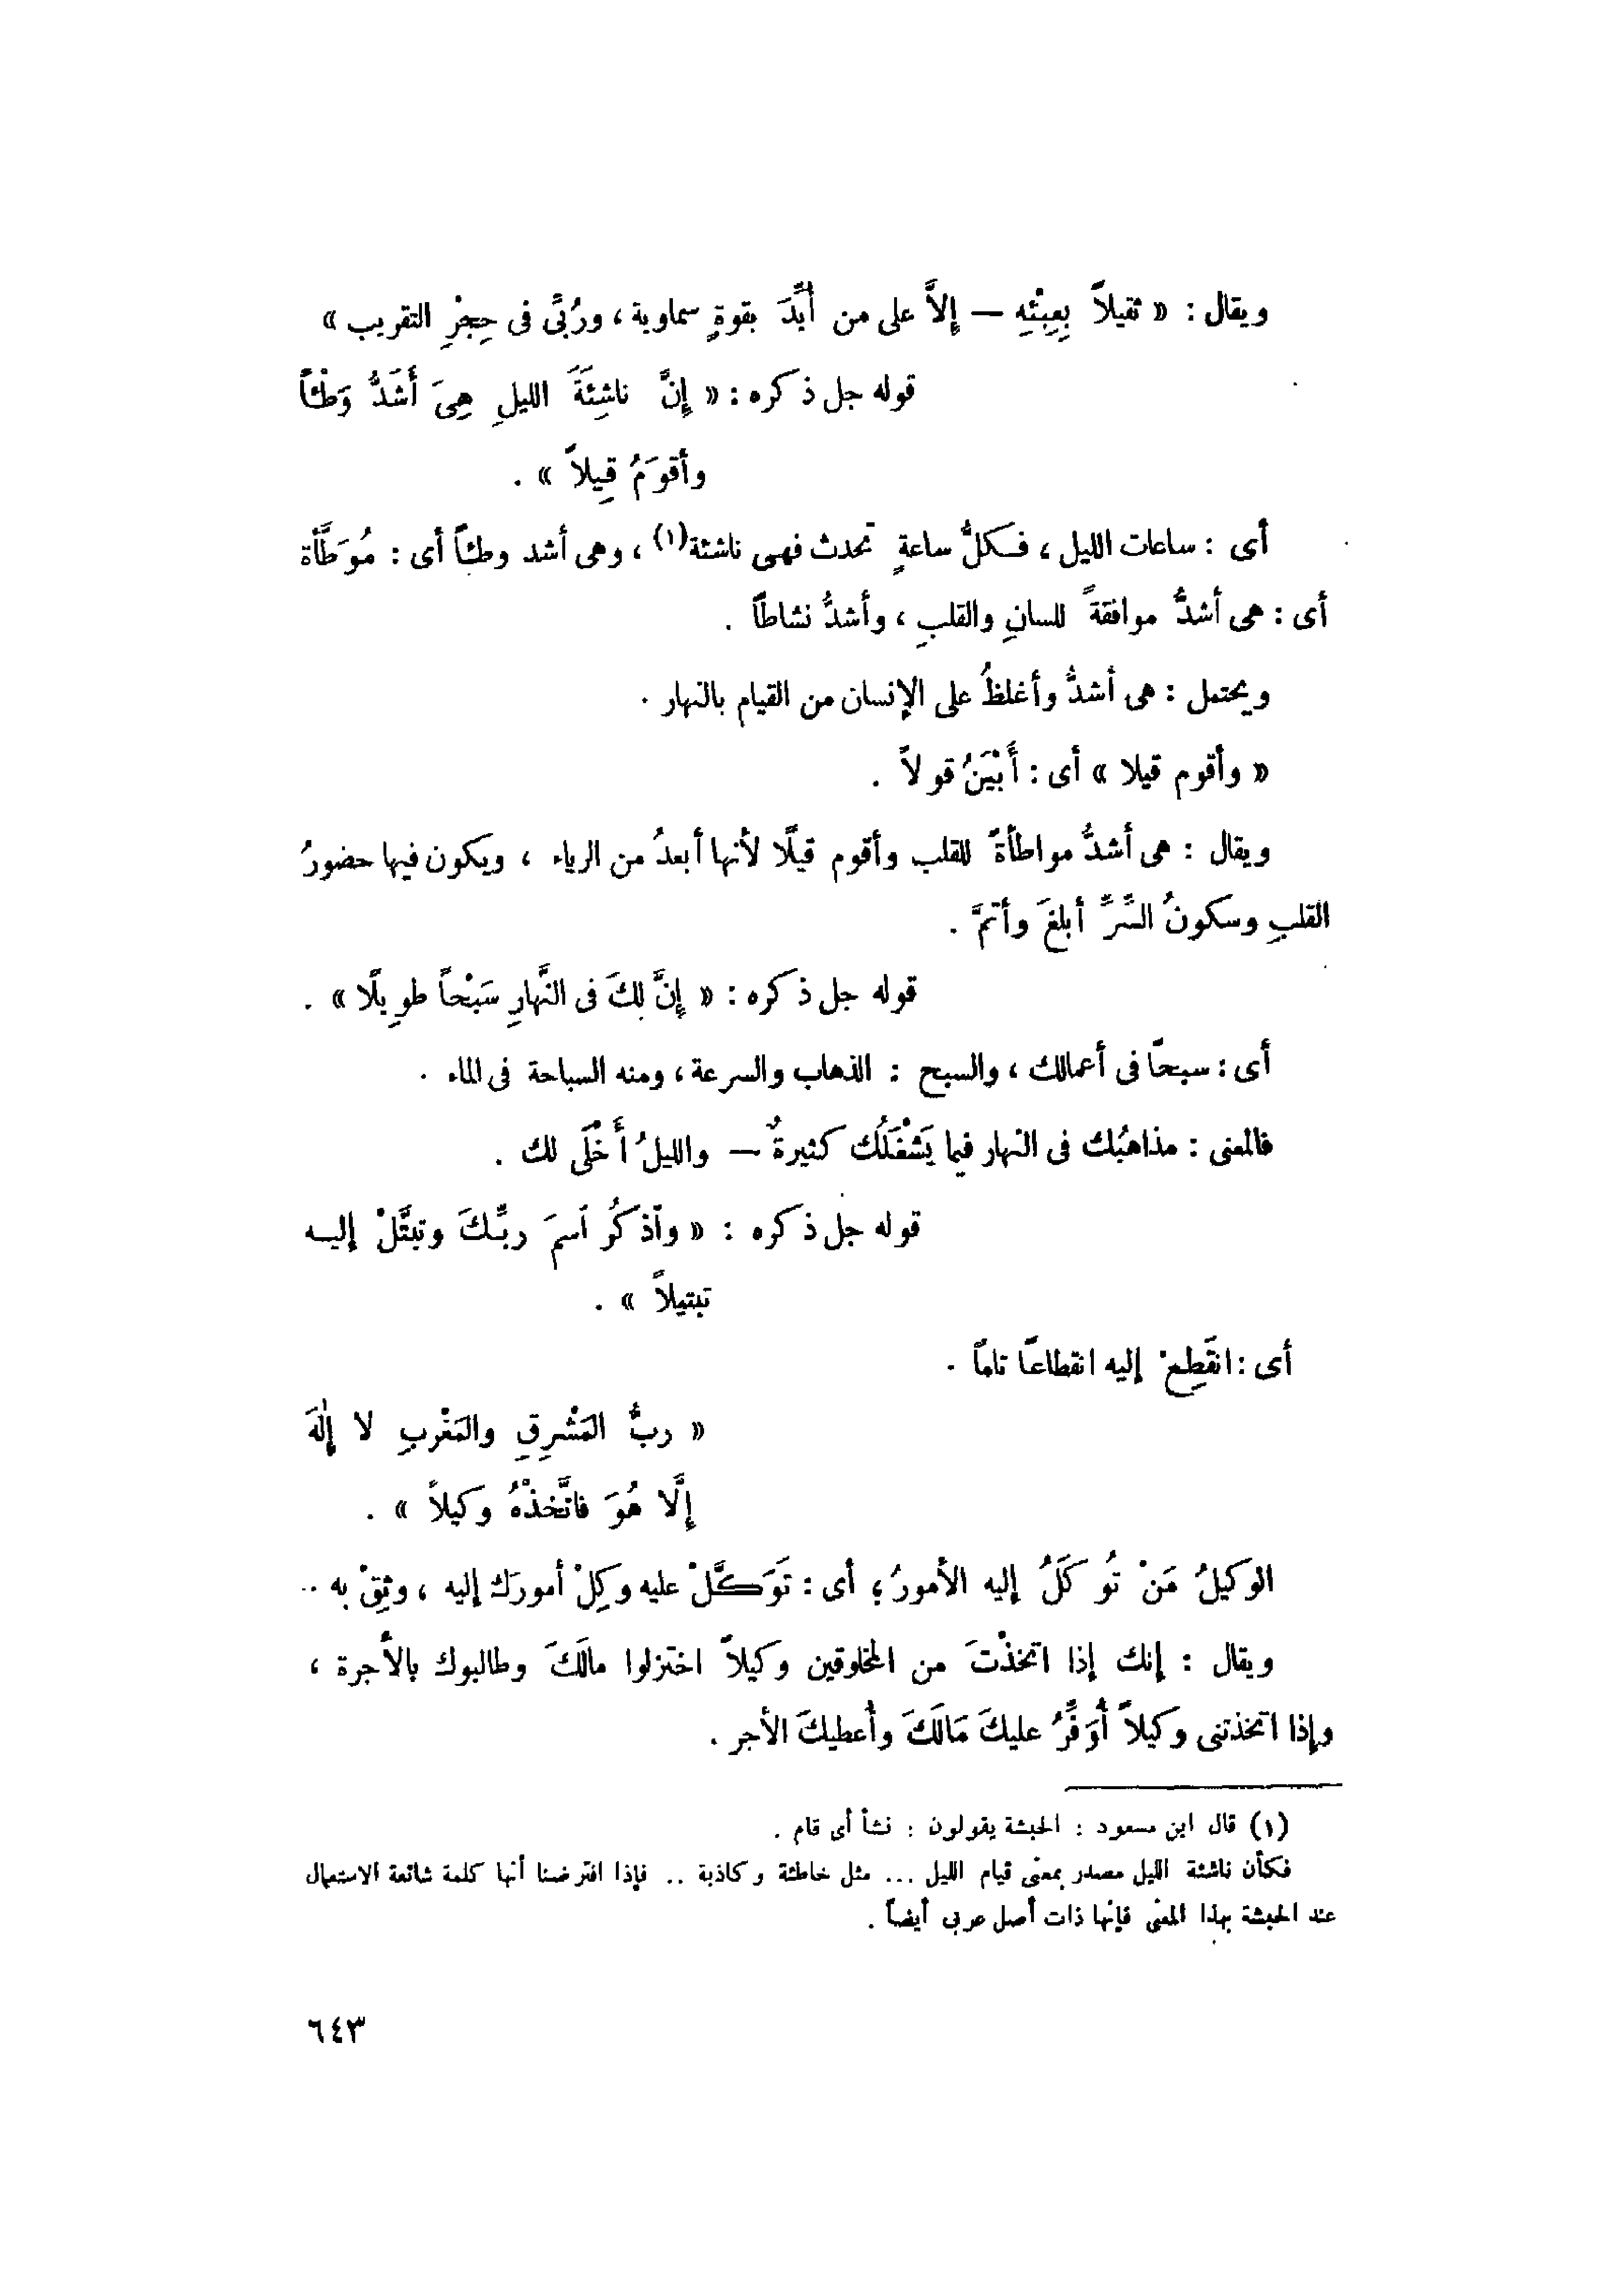 ويقال : « ثقيلاً بِعِبْئِهِ — إِلاَّ على من أُيِّدَ بقوةٍ سماوية ، ورُبِّىَ فى حِجْرِ التقريب »
قوله جل ذكره : « إِنَّ ناشِئَةَ الليلِ هِىَ أَشَدُّ وَطْئاً
وأقوَمُ قِيلاً » .
أى : ساعات الليل ، فكلُّ ساعةٍ تحدث فهى ناشئة(١) ، وهى أشد وطئاً أى : مُوَطَّأة
أى : هى أشدُّ موافقةً للسانِ والقلبِ ، وأشدُّ نشاطاً .
ويحتمل : هى أشدُّ وأغلظُ على الإنسان من القيام بالنهار .
« وأقوم قيلا » أى : أَبْيَنُ قولاً .
ويقال : هى أشدُّ مواطأةً للقلب وأقوم قيلًا لأنها أبعدُ من الرياء ، ويكون فيها حضورُ
القلبِ وسكونُ السِّرِّ أبلغَ وأتمَّ .
قوله جل ذكره : « إِنَّ لكَ فى النَّهارِ سَبْحاً طوِيلًا » .
أى : سبحاً فى أعمالك ، والسبح : الذهاب والسرعة ، ومنه السباحة فى الماء .
فالمعنى : مذاهبُك فى النهار فيما يَشْغَلُك كثيرةٌ — والليلُ أَخْلَى لك .
قوله جل ذكره : « وٱذكُرِ ٱسمَ ربِّكَ وتبتَّلْ إليه
تبتيلاً » .
أى : انقَطِعْ إليه انقطاعاً تاماً .
« ربُّ المَشْرِقِ والمَغْربِ لا إِلٰهَ
إِلَّا هُوَ فاتَّخذْهُ وكيلاً » .
الوكيلُ مَنْ تُوكَلُ إليه الأمورُ ؛ أى : تَوَكَّلْ عليه وكِلْ أمورَك إليه ، وثِقْ به ..
ويقال : إنك إذا اتخذْتَ من المخلوقين وكيلاً اختزلوا مالَكَ وطالبوك بالأجرة ،
وإذا اتخذتنى وكيلاً أُوَفِّرُ عليكَ مَالَكَ وأُعطيكَ الأجر .
(١) قال ابن مسعود : الحبشة يقولون : نشأ أى قام .
فكأن ناشئة الليل مصدر بمعنى قيام الليل ... مثل خاطئة وكاذبة .. فإذا افترضنا أنها كلمة شائعة الاستعمال
عند الحبشة بهذا المعنى فإنها ذات أصل عربى أيضاً .
٦٤٣